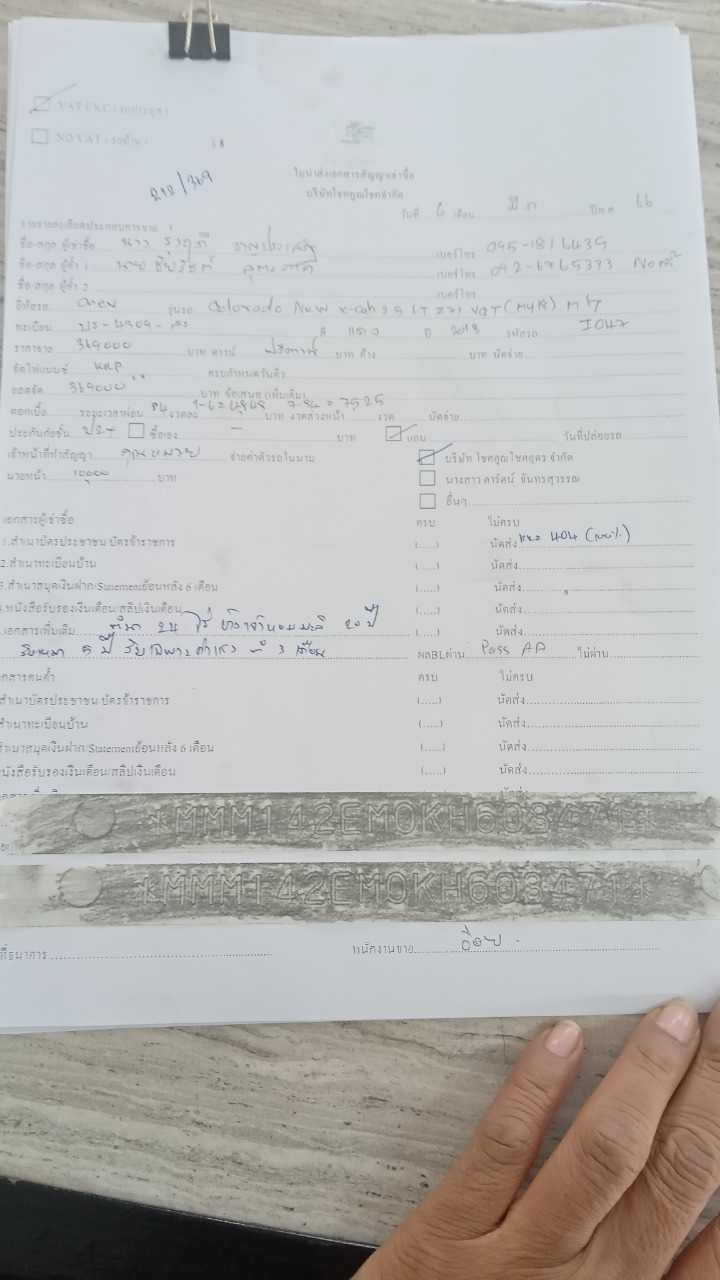 VAT CKC ( รถประมูล )
NO VAT ( รถบ้าน )
212/369
ใบนำส่งเอกสารสัญญาเช่าซื้อ
บริษัทโชคคูณโชคจำกัด
วันที่ 6 เดือน มี.ค ปีพ.ศ 66
รายรายละเอียดประกอบการขาย
ชื่อ-สกุล ผู้เช่าซื้อ นาง เบอร์โทร 095-1816439
ชื่อ-สกุล ผู้ค้ำ 1 นาย เบอร์โทร 092-6765333
ชื่อ-สกุล ผู้ค้ำ 2 เบอร์โทร
ยี่ห้อรถ Chev รุ่นรถ Colorado New x-cab 2.5 LT Z71 VGT (MY18) MT
ทะเบียน สี แดง ปี 2018 รหัสรถ I047
ราคาขาย 369000 บาท ดาวน์ ฟรีดาวน์ บาท ค้าง บาท นัดจ่าย
จัดไฟแนนซ์ KKP ครบกำหนดรับคิว
ยอดจัด 369000 บาท ข้อเสนอ (เพิ่มเติม)
ดอกเบี้ย ระยะเวลาผ่อน 84 งวดละ 1-6 = 4848 7-84 = 7525 บาท งวดล่วงหน้า งวด นัดจ่าย
ประกันภัยชั้น ป2+ ซื้อเอง - บาท แถม วันที่ปล่อยรถ
เจ้าหน้าที่ทำสัญญา คุณ จ่ายค่าตัวรถในนาม บริษัท โชคคูณโชคอุดร จำกัด
นายหน้า 10,000 บาท นางสาว ดารัตน์ จันทรสุวรรณ
อื่นๆ
เอกสารผู้เช่าซื้อ ครบ ไม่ครบ
1.สำเนาบัตรประชาชน/บัตรข้าราชการ (.....) นัดส่ง 404 (100%)
2.สำเนาทะเบียนบ้าน (.....) นัดส่ง
3.สำเนาสมุดเงินฝาก/Statementย้อนหลัง 6 เดือน (.....) นัดส่ง
.หนังสือรับรองเงินเดือน/สลิปเงินเดือน (.....) นัดส่ง
.เอกสารเพิ่มเติม ทำนา 24 ไร่ 20 ปี (.....) นัดส่ง
5 ปี 3 เดือน ผลBLผ่าน Pass AA ไม่ผ่าน
เอกสารคนค้ำ ครบ ไม่ครบ
สำเนาบัตรประชาชน/บัตรข้าราชการ (.....) นัดส่ง
สำเนาทะเบียนบ้าน (.....) นัดส่ง
สำเนาสมุดเงินฝาก/Statementย้อนหลัง 6 เดือน (.....) นัดส่ง
หนังสือรับรองเงินเดือน/สลิปเงินเดือน (.....) นัดส่ง
*MMM142EM0KH603471*
*MMM142EM0KH603471*
ชื่อธนาคาร พนักงานขาย